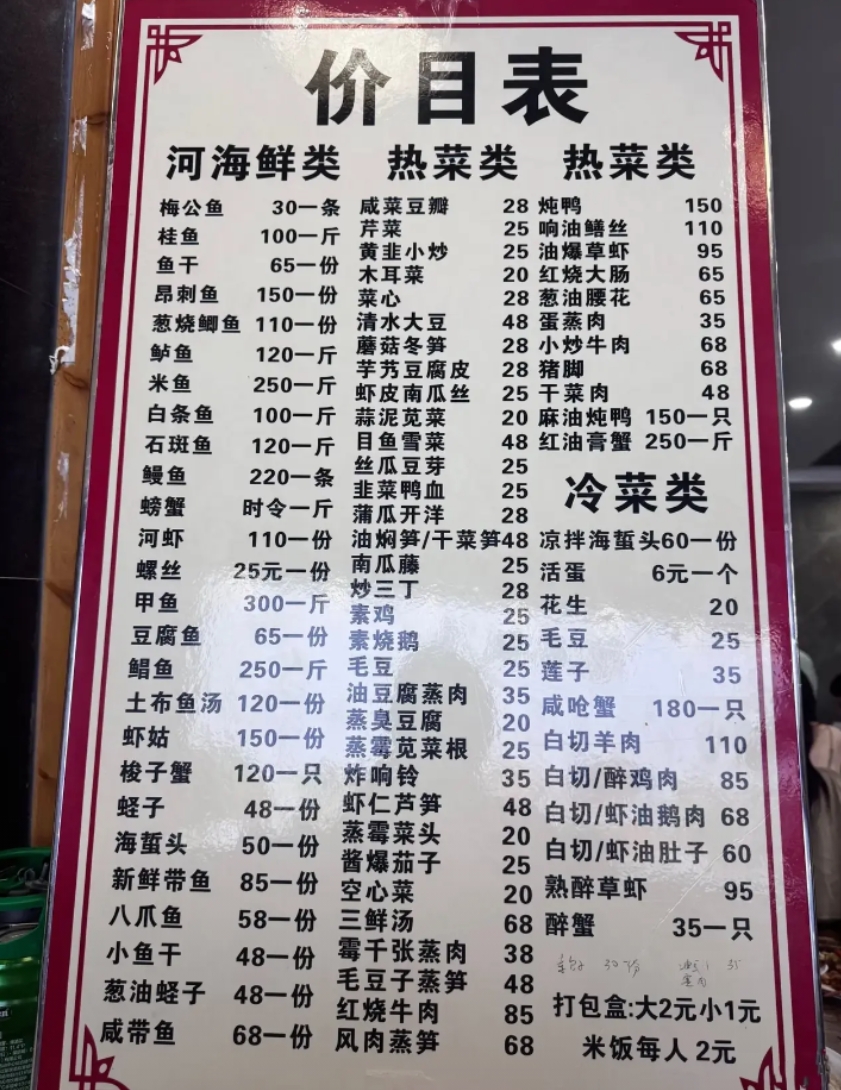 价目表
河海鲜类
梅公鱼 30一条
桂鱼 100一斤
鱼干 65一份
昂刺鱼 150一份
葱烧鲫鱼 110一份
鲈鱼 120一斤
米鱼 250一斤
白条鱼 100一斤
石斑鱼 120一斤
鳗鱼 220一条
螃蟹 时令一斤
河虾 110一份
螺丝 25元一份
甲鱼 300一斤
豆腐鱼 65一份
鲳鱼 250一斤
土布鱼汤 120一份
虾姑 150一份
梭子蟹 120一只
蛏子 48一份
海蜇头 50一份
新鲜带鱼 85一份
八爪鱼 58一份
小鱼干 48一份
葱油蛏子 48一份
咸带鱼 68一份
热菜类
咸菜豆瓣 28
芹菜 25
黄韭小炒 25
木耳菜 20
菜心 28
清水大豆 48
蘑菇冬笋 28
芋艿豆腐皮 28
虾皮南瓜丝 25
蒜泥苋菜 20
目鱼雪菜 48
丝瓜豆芽 25
韭菜鸭血 25
蒲瓜开洋 28
油焖笋/干菜笋48
南瓜藤 25
炒三丁 28
素鸡 25
素烧鹅 25
毛豆 25
油豆腐蒸肉 35
蒸臭豆腐 20
蒸霉苋菜根 25
炸响铃 35
虾仁芦笋 48
蒸霉菜头 20
酱爆茄子 25
空心菜 20
三鲜汤 68
霉千张蒸肉 38
毛豆子蒸笋 48
红烧牛肉 85
风肉蒸笋 68
热菜类
炖鸭 150
响油鳝丝 110
油爆草虾 95
红烧大肠 65
葱油腰花 65
蛋蒸肉 35
小炒牛肉 68
猪脚 68
干菜肉 48
麻油炖鸭 150一只
红油膏蟹 250一斤
冷菜类
凉拌海蜇头60一份
活蛋 6元一个
花生 20
毛豆 25
莲子 35
咸呛蟹 180一只
白切羊肉 110
白切/醉鸡肉 85
白切/虾油鹅肉 68
白切/虾油肚子 60
熟醉草虾 95
醉蟹 35一只
打包盒:大2元小1元
米饭每人2元